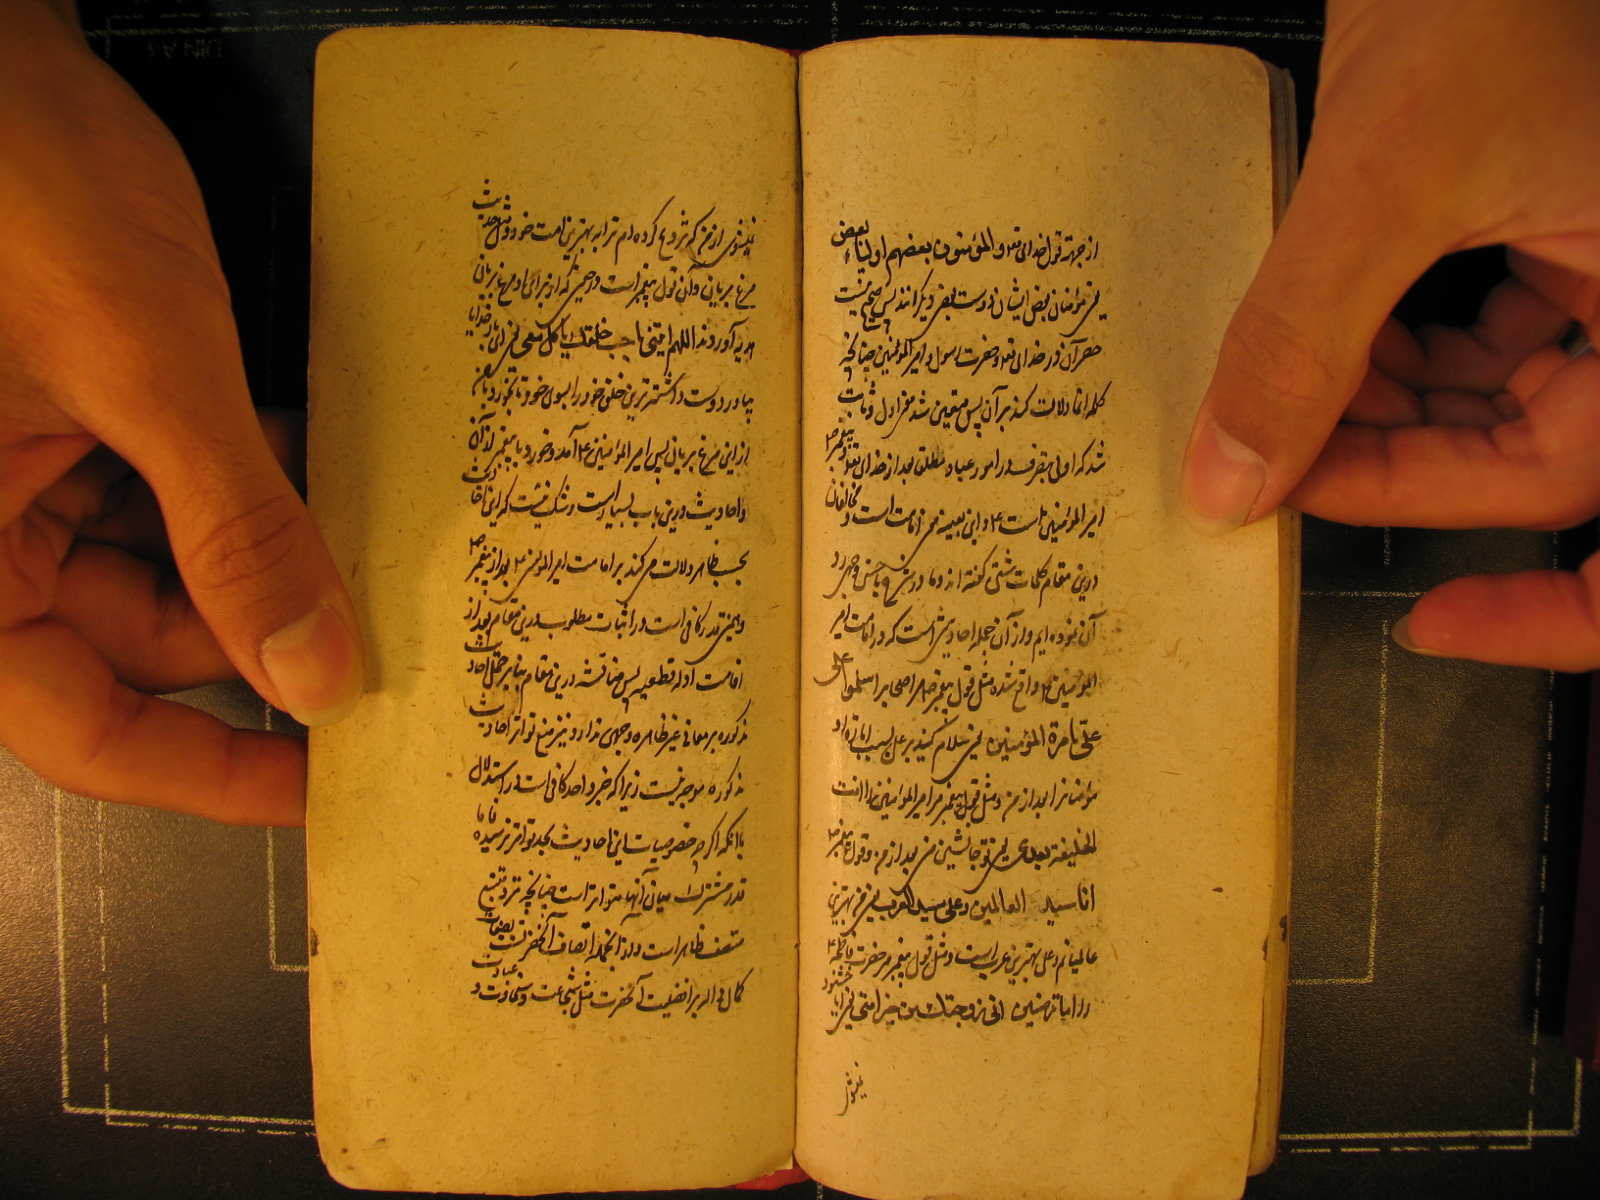 از جهة قول خدای تعه والمؤمنون بعضهم اولیاء بعض
یعنی مؤمنان بعض ایشان دوست بعض دیگرانند پس صحیح نیست
حصر آن در خدای تعه و حضرت رسول و امیر المؤمنین چنانچه
کلمه انما دلالت کند بر آن پس متعین شد معنی اول و ثابت
شد که اولی بتصرف در امور عباد مطلق بعد از خدای تعه و پیغمبر ص
امیر المؤمنین است ع و این بعینه معنی امامت است و مخالفان
درین مقام کلمات شتی گفته اند و ما در شرح با حسن وجهی رد
آن نموده ایم و از آن جمله احادیثی است که در امامت امیر
المؤمنین ع واقع شده مثل قول پیغمبر ص مر اصحاب را سلموا علی
علی بامرة المؤمنین یعنی سلام کنید بر علی بسبب امارة او
مؤمنانرا بعد از من و مثل قول پیغمبر مر امیر المؤمنین را انت
الخلیفة بعدی یعنی تو جانشین من بعد از من و قول پیغمبر ص
انا سید العالمین و علی سید العرب یعنی من بهترین
عالمیانم و علی بهترین عرب است و مثل قول پیغمبر مر حضرت فاطمه ع
را اما ترضین انی زوجتك من خیر امتی یعنی ایا خشنود
نمیشوی
نمیشوی از من که تزویج کرده ام ترا به بهترین امت خود و مثل حدیث
مرغ بریان و آن قول پیغمبر است در حینی که از برای او مرغ بریان
هدیه آوردند اللهم ایتنی باحب خلقك یاکل معی یعنی ای بار خدایا
بیاور دوست داشته ترین خلق خود را بسوی خود تا بخورد با من
از این مرغ بریان پس امیر المؤمنین ع آمد و خورد با پیغمبر از آن
و احادیث درین باب بسیار است و شک نیست که این احادیث
بحسب ظاهر دلالت می کند بر امامت امیر المؤمنین ع بعد از پیغمبر ص
و همین قدر کافی است در اثبات مطلوب درین مقام بعد از
اقامت ادله قطعیه پس مناقشه درین مقام بنابر حمل احادیث
مذکوره بر معانی غیر ظاهره وجهی ندارد و نیز منع تواتر احادیث
مذکوره موجه نیست زیرا که خبر واحد کافی است در استدلال
با انکه اگر چه خصوصیات این احادیث بحد تواتر نرسیده فاما
قدر مشترك میان آنها متواتر است چنانچه نزد متتبع
منصف ظاهر است و از آنجمله اتصاف آنحضرت بصفات
کمال داله بر افضلیت آنحضرت مثل شجاعت و سخاوت و عبادت و